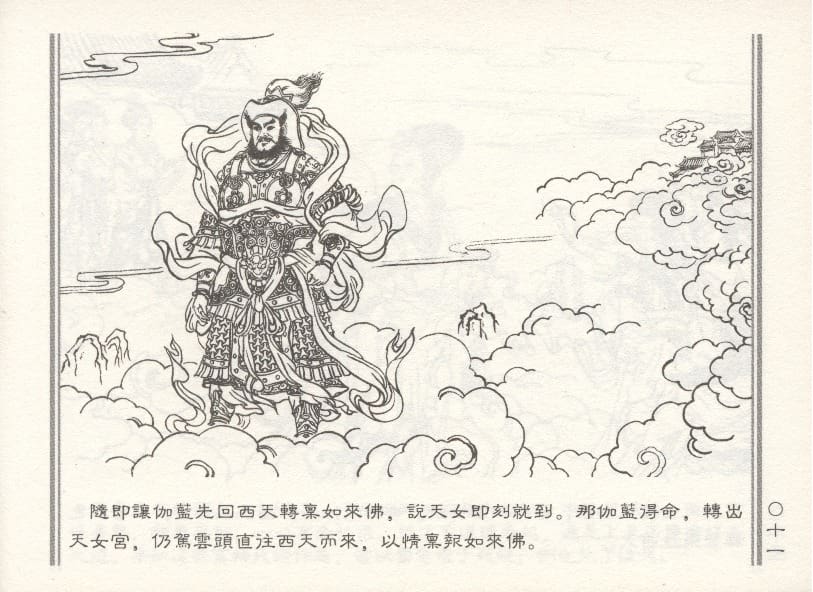 隨即讓伽藍先回西天轉稟如來佛，說天女即刻就到。那伽藍得命，轉出
天女宮，仍駕雲頭直往西天而來，以情稟報如來佛。
〇十一